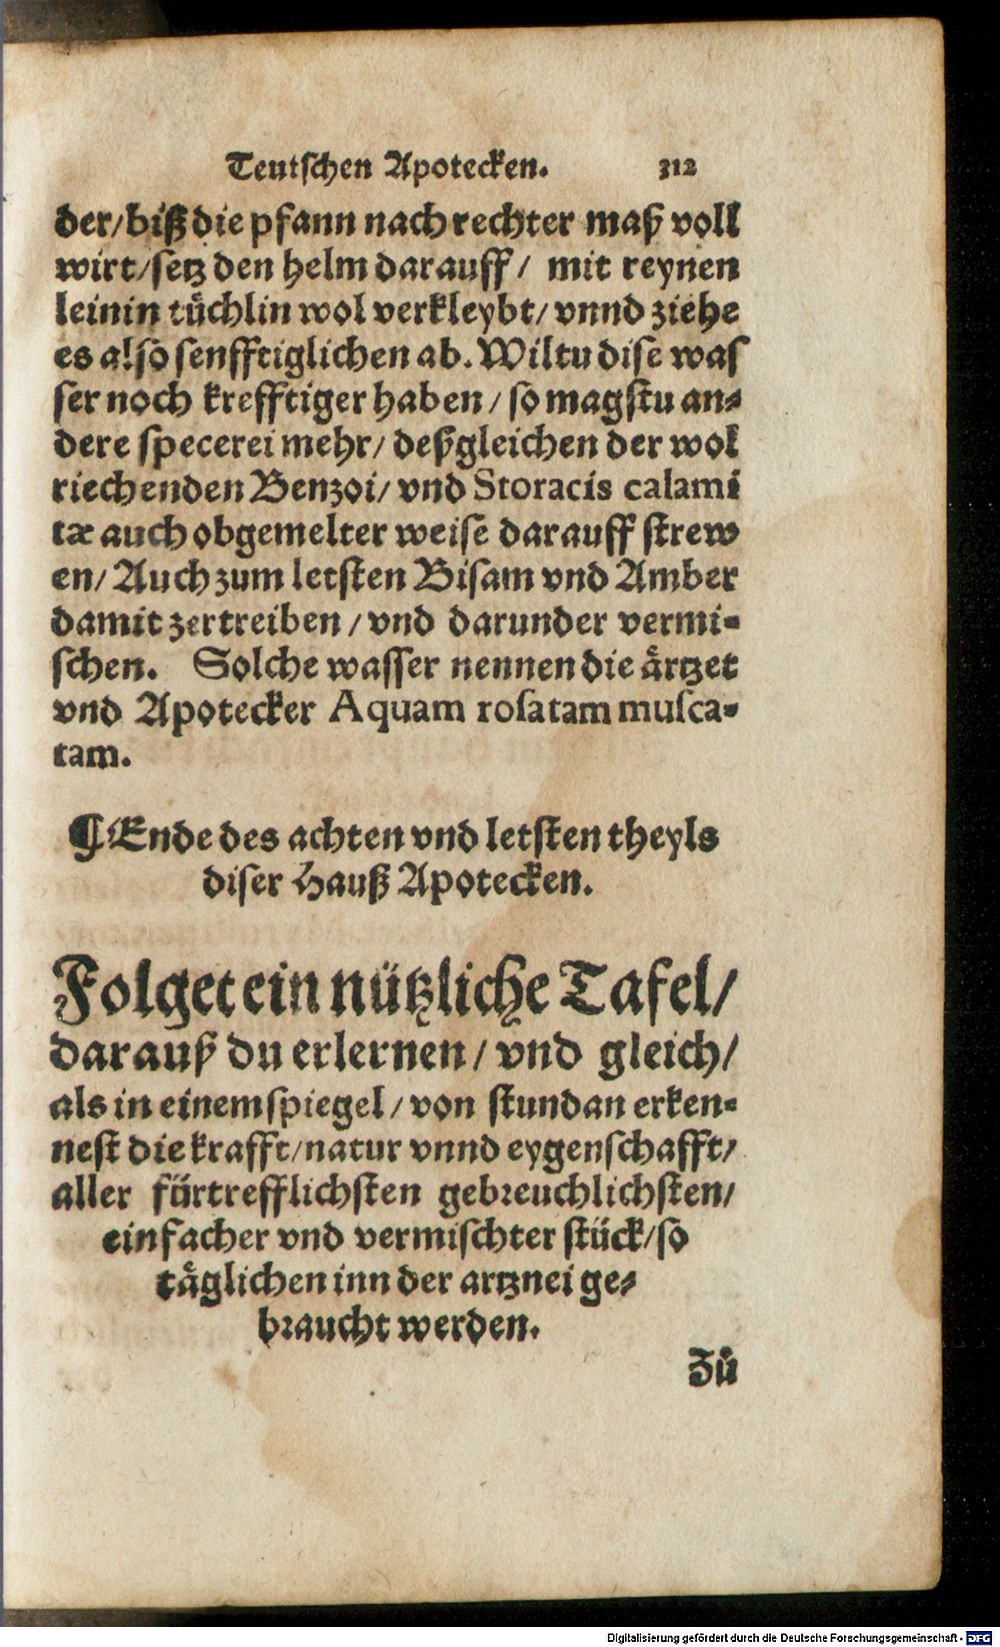 Teutschen Apotecken. 312
der/ biß die pfann nach rechter maß voll
wirt/ setz den helm darauff/ mit reynen
leinin tuͤchlin wol verkleybt/ vnnd ziehe
es also senfftiglichen ab. Wiltu dise was
ser noch krefftiger haben/ so magstu an-
dere specerei mehr/ deßgleichen der wol
riechenden Benzoi/ vnd Storacis calami
tæ auch obgemelter weise darauff strew
en/ Auch zum letsten Bisam vnd Amber
damit zertreiben/ vnd darunder vermi-
schen. Solche wasser nennen die aͤrtzet
vnd Apotecker Aquam rosatam musca-
tam.
¶ Ende des achten vnd letsten theyls
diser Hauß Apotecken.
Folget ein nützliche Tafel/
darauß du erlernen/ vnd gleich/
als in einem spiegel/ von stundan erken-
nest die krafft/ natur vnnd eygenschafft/
aller fürtrefflichsten gebreuchlichsten/
einfacher vnd vermischter stück/ so
taͤglichen inn der artznei ge-
braucht werden.
Zuͤ
Digitalisierung gefördert durch die Deutsche Forschungsgemeinschaft - DFG